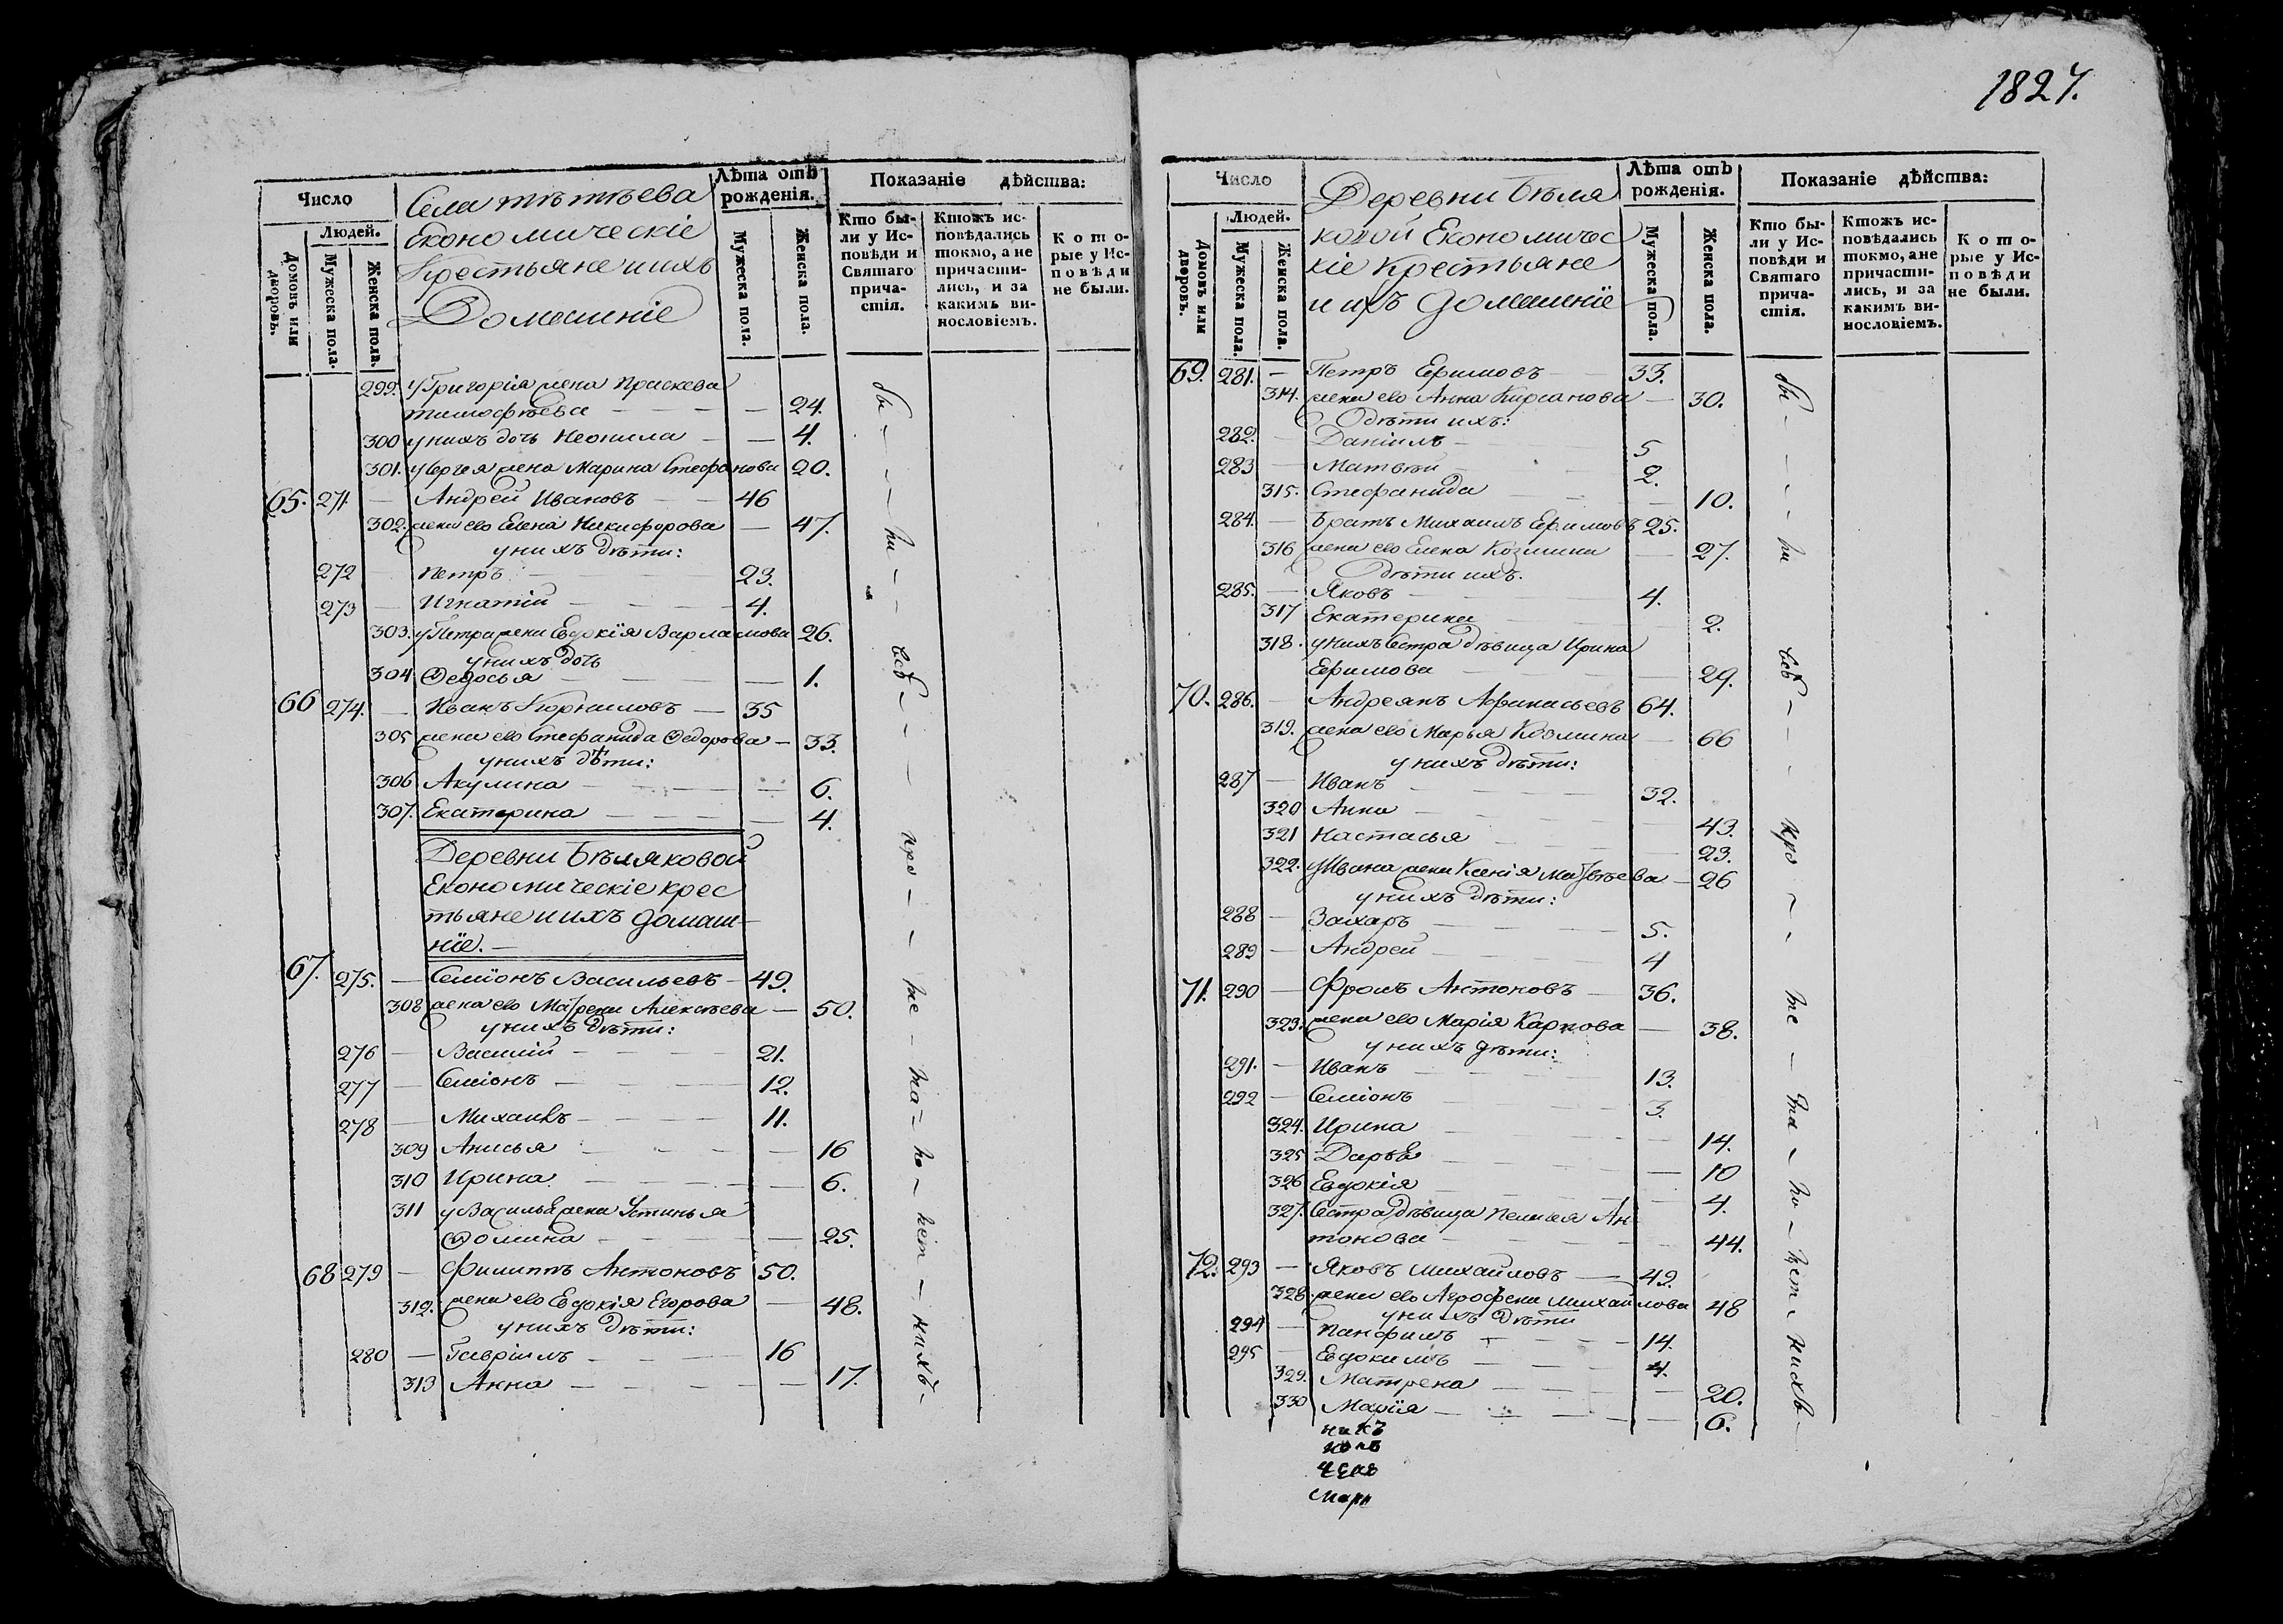 1827.
Число
Людей.
Домовъ или дворовъ.
Мужеска пола.
Женска пола.
Села тѣтѣева
Економическіе
Крестьяне и ихъ
Домашніе
Лѣта отъ рожденія.
Мужеска пола.
Женска пола.
Показаніе дѣйства:
Кто бы-
ли у Ис-
повѣди и
Святаго
прича-
стія.
Ктожъ ис-
повѣдались
токмо, а не
причасти-
лись, и за
какимъ ви-
нословіемъ.
Кото-
рые у Ис-
повѣди
не были.
299. у Григорія жена Праскева
тимофѣева — — — 24.
300 у нихъ дочь Неонила — — 4.
301. у Сергея жена Марина Стефанова 20.
65. 271 — Андрей Ивановъ — 46
302. жена ево Елена Никифорова — 47.
у нихъ дѣти:
272 Петръ — 23.
273 — Игнатій — 4.
303. у Петра жена Евдокія Варламова 26.
у нихъ дочь
304 Ѳедосья — — 1.
66 274. — Иванъ Корниловъ — 35
305 жена ево Стефанида Ѳедорова — 33.
у нихъ дѣти:
306 Акулина — — 6.
307. Екатерина — — 4.
Деревни Бѣляковой
Економическіе крес
тьяне и ихъ домаш-
ніе. —
67. 275. — Семіонъ Васильевъ — 49.
308 жена ево Матрена Алексѣева — 50.
у нихъ дѣти:
276 — Василій — 21.
277 — Семіонъ — 12.
278 — Михаилъ — 11.
309 Анисья — — 16
310 Ирина — — 6.
311 у Василья жена Устинья
Ѳомина — — 25.
68 279 — Филиппъ Антоновъ 50.
312. жена ево Евдокія Егорова — 48.
у нихъ дѣти:
280 — Гавріилъ — 16
313 Анна — — 17.
бы — ли — всѣ — — пре — не — ка — ко — нет — нихъ —
Число
Людей.
Домовъ или дворовъ.
Мужеска пола.
Женска пола.
Деревни Бѣля
ковой Економичес
кіе Крестьяне
и ихъ домашніе
Лѣта отъ рожденія.
Мужеска пола.
Женска пола.
Показаніе дѣйства:
Кто бы-
ли у Ис-
повѣди и
Святаго
прича-
стія.
Ктожъ ис-
повѣдались
токмо, а не
причасти-
лись, и за
какимъ ви-
нословіемъ.
Кото-
рые у Ис-
повѣди
не были.
69. 281. — Петръ Ефимовъ — 33.
314. жена ево Анна Кирсанова — 30.
Дѣти ихъ:
282. — Даніилъ — 5
283 — Матвѣй — 2.
315. Стефанида — — 10.
284. — братъ Михаилъ Ефимовъ 25.
316 жена ево Елена Козмина — 27.
Дѣти ихъ.
285. — Яковъ — 4.
317 Екатерина — 2.
318. у нихъ Сестра дѣвица Ирина
Ефимова — — 29.
70. 286. — Андреянъ Афанасьевъ 64.
319. жена ево Марья Козмина — 66
у нихъ дѣти:
287 — Иванъ — 32.
320 Анна — — 43.
321 Настасья — — 23.
322. у Ивана жена Ксенія Матвѣева — 26
у нихъ дѣти:
288 — Захаръ — 5.
289 — Андрей — 4
71. 290 — Фролъ Антоновъ — 36.
323. жена ево Марія Карпова — 38.
у нихъ дѣти:
291. — Иванъ — 13.
292 — Семіонъ — 3.
324. Ирина — — 14.
325 Дарья — — 10
326 Евдокія — — 4.
327. Сестра дѣвица Пелагея Ан
тонова — — 44.
72. 293 — Яковъ Михайловъ — 49.
328. жена ево Агрофена Михайлова 48
у нихъ дѣти
294 — Панфилъ — 14.
295 — Евдокимъ — 4.
329. Матрена — — 20.
330 Марія — — 6.